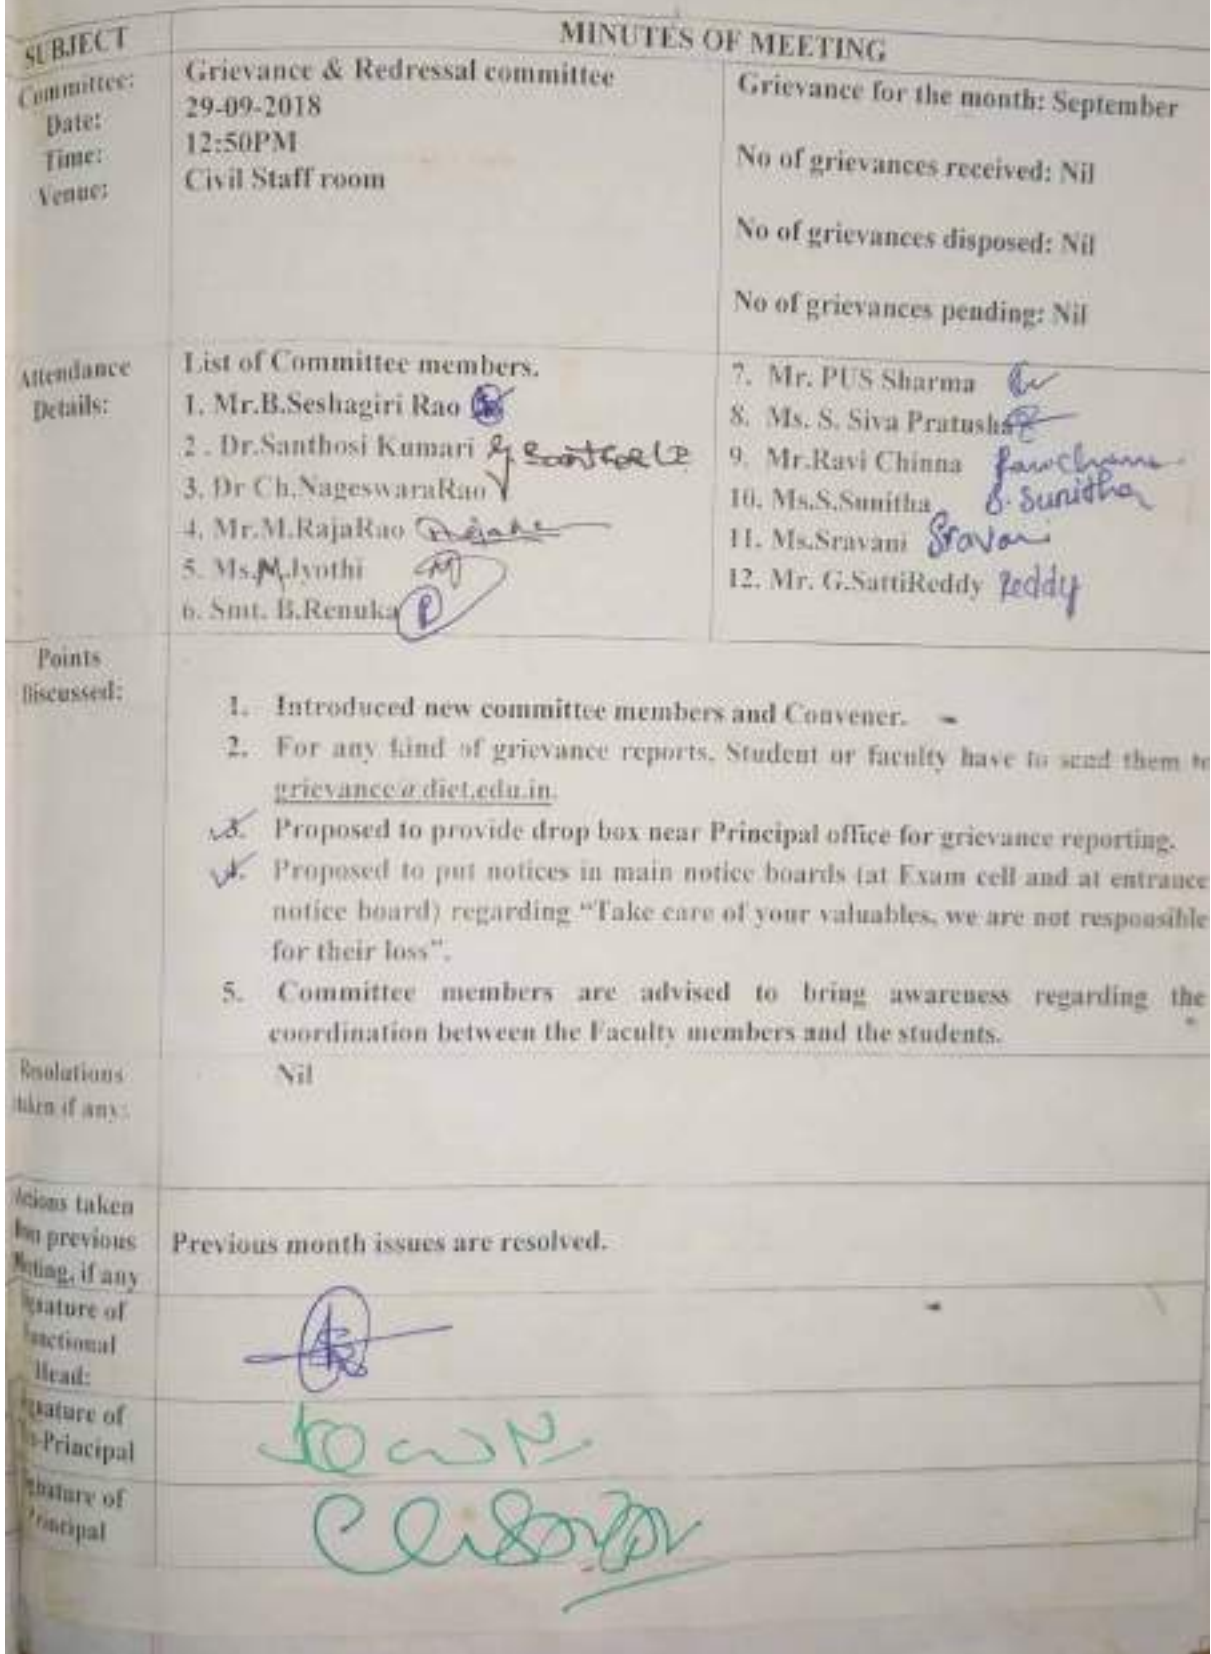 SUBJECT
MINUTES OF MEETING
Committee:
Date:
Time:
Venue:
Grievance & Redressal committee
29-09-2018
12:50PM
Civil Staff room
Grievance for the month: September
No of grievances received: Nil
No of grievances disposed: Nil
No of grievances pending: Nil
Attendance
Details:
List of Committee members.
1. Mr.B.Seshagiri Rao
2 . Dr.Santhosi Kumari
3. Dr Ch.NageswaraRao
4. Mr.M.RajaRao
5. Ms.M.Jyothi
6. Smt. B.Renuka
7. Mr. PUS Sharma
8. Ms. S. Siva Pratusha
9. Mr.Ravi Chinna
10. Ms.S.Sunitha S. Sunitha
11. Ms.Sravani Sravani
12. Mr. G.SattiReddy Reddy
Points
Discussed:
1. Introduced new committee members and Convener.
2. For any kind of grievance reports, Student or faculty have to send them to
grievance@diet.edu.in.
3. Proposed to provide drop box near Principal office for grievance reporting.
4. Proposed to put notices in main notice boards (at Exam cell and at entrance
notice board) regarding “Take care of your valuables, we are not responsible
for their loss”.
5. Committee members are advised to bring awareness regarding the
coordination between the Faculty members and the students.
Resolutions
taken if any:
Nil
Actions taken
previous
Meeting, if any
Previous month issues are resolved.
Signature of
Functional
Head:
Signature of
Principal
Signature of
Principal